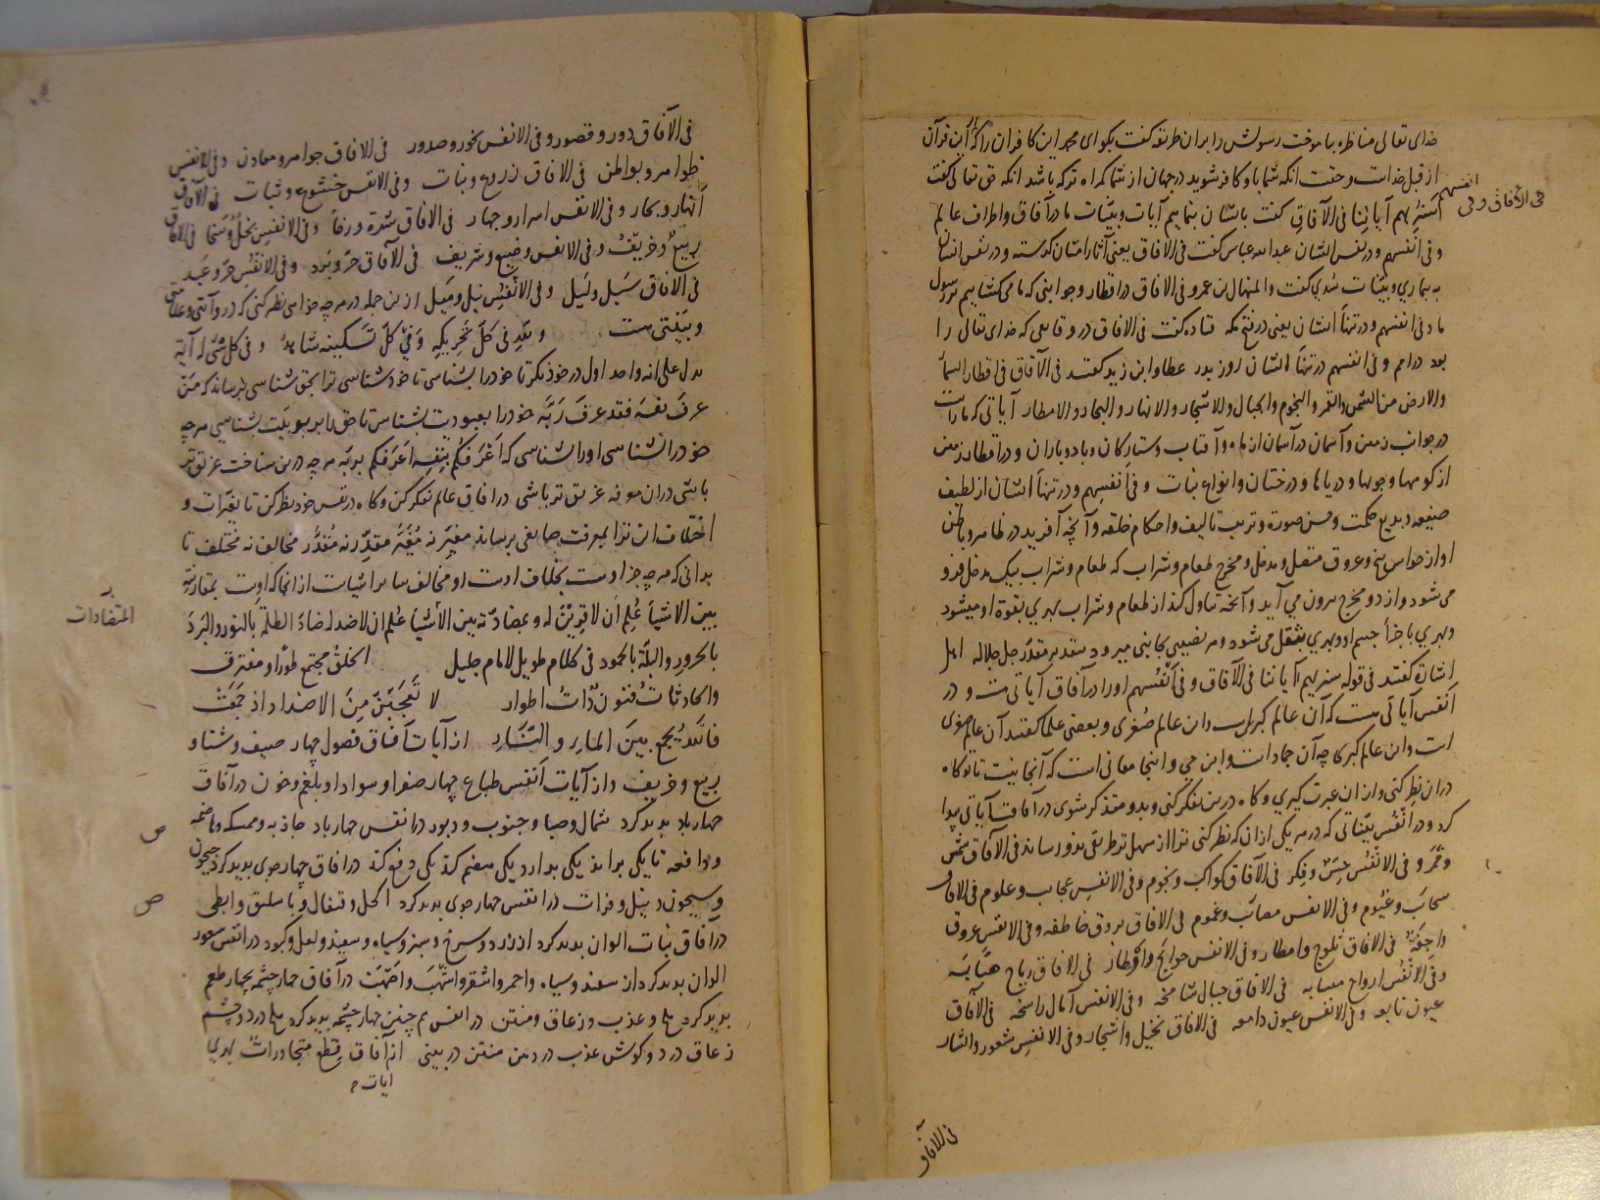 خدای تعالی مناظره بیاموخت رسولش را بر آن طریقه گفت بگو ای محمد این کافران را که اگر این قرآن
از قبل خداست و حقست آنکه شما باو کافر شوید در جهان از شما گمراه تر که باشد آنکه حق تعالی گفت
سنریهم آیاتنا فی الآفاق گفت باایشان بنماییم آیات و بینات ما در آفاق و اطراف عالم
فی الآفاق و فی انفسهم
و فی انفسهم و در نفس ایشان عبدالله عباس گفت فی الآفاق یعنی آثار امتان گذشته و در نفس ایشان
به بیماری و بلیات سدی گفت والمنهال بن عمرو فی الآفاق در اقطار و جوانبی که ما می گشاییم بر رسول
ما و فی انفسهم و در تنهاء ایشان یعنی در فتح مکه قتاده گفت فی الآفاق در وقایعی که خدای تعالی را
بود در امم و فی انفسهم در تنهاء ایشان روز بدر عطا و ابن زید گفتند فی الآفاق فی اقطار السماء
والارض من الشمس والقمر والنجوم والجبال والاشجار والانهار والبحار والامطار آیاتی که ما راست
در جوانب زمین و آسمان در آسمان از ماه و آفتاب و ستارگان و باد و باران و در اقطار زمین
از کوهها و جویها و دریاها و درختان و انواع نبات و فی انفسهم و در تنهاء ایشان از لطیف
صنیعه و بدیع حکمت و حسن صورة و ترتیب تالیف و احکام خلقه و آنچه آفرید در ظاهر و باطن
او از حواس پنج و عروق متصل و مدخل و مخرج طعام و شراب که طعام و شراب بیک مدخل فرو
می شود و از دو مخرج برون می آید و آنچه تناول کند از طعام و شراب بهری بقوة او میشود
و بهری با جزاء جسم او و بهری بثقل می شود و هر نصیبی بجانبی میرود بتقدیر مقدر جل جلاله اهل
اشارة گفتند فی قوله سنریهم آیاتنا فی الآفاق و فی انفسهم او را در آفاق آیاتی است و در
انفس آیاتی هست که آن عالم کبری است و این عالم صغری و بعضی علما گفتند آن عالم صغری
است و این عالم کبری چه آن جماد است و این حی و اینجا معانی است که آنجا نیست تا تو گاه
در آن نظر کنی و از ان عبرت گیری و گاه درین تفکر کنی و بدو متذکر شوی در آفاقت آیاتی پیدا
کرد و در انفس بیناتی که در هر یکی از آن که نظر کنی ترا از سهل تر طریقی بدو رساند فی الآفاق شمس
و قمر و فی الانفس حس و فکر فی الآفاق کواکب و نجوم و فی الانفس عجایب و علوم فی الآفاق
سحاب و غیوم و فی الانفس مصائب و غموم فی الآفاق بروق خاطفه و فی الانفس عروق
واجفة فی الآفاق ثلوج و امطار و فی الانفس حوایج و اوطار فی الآفاق ریاح هبابه
و فی الانفس ارواح فی الآفاق جبال شامخه و فی الانفس آمال راسخه فی الآفاق
عیون نابعه و فی الانفس عیون دامعه فی الآفاق نخیل و اشجار و فی الانفس شعور و ابشار
فی الآفاق
فی الآفاق دور و قصور و فی الانفس نحور و صدور فی الآفاق جواهر و معادن و فی الانفس
ظواهر و بواطن فی الآفاق زروع و نبات و فی الانفس خشوع و ثبات فی الآفاق
انهار و بحار و فی الانفس اسرار و جهار فی الآفاق شدة و رخاء و فی الانفس بخل و سخا فی الآفاق
ربیع و خریف و فی الانفس وضیع و شریف فی الآفاق حر و برد و فی الانفس حر و عبد
فی الآفاق سبل و سیل و فی الانفس نیل و میل ازین جمله در هر چه خواهی نظر کنی که در و آیتی و علامتی
و بینتی هست و لله فی کل تحریکه و فی کل تسکینه شاهد و فی کل شیء له آیة
تدل علی انه واحد اول در خود نگر تا خود را بشناسی تا خودشناسی ترا بحق شناسی برساند که من
عرف نفسه فقد عرف ربه خود را بعبودیت بشناس تا حق را بربوبیت بشناسی هر چه
خود را بشناسی او را شناسی که اعرفکم بنفسه اعرفکم بربه هر چه درین شناخت عریق تر
باشی در آن معرفه غریق تر باشی در آفاق عالم تفکر کن و گاه در نفس خود نظر کن تا تغیرات و
اختلاف آن ترا بمعرفت صانعی برساند مغیر نه مغیر مقدر نه مقدر مخالف نه مختلف تا
بدانی که هر چه جز اوست بخلاف اوست او مخالف سایر اشیاست از انجا که اوست بمقارنته
بین الاشیاء علم ان لا قرین له و بمضادته بین الاشیاء علم ان لا ضد له ضاد الظلمة بالنور والبرد
المتضادات
بالحرور والبلة بالجمود فی کلام طویل لامام جلیل الخلق مجتمع طورا و مفترق
والحادثات فنون ذات اطوار لا تعجبن من الاضداد اذ جمعت
فالله یجمع بین الماء و النار از آیات آفاق فصول چهار صیف و شتا و
ربیع و خریف و از آیات انفس طبایع چهار صفرا و سودا و بلغم و خون در آفاق
چهار باد پدید کرد شمال و صبا و جنوب و دبور در انفس چهار باد جاذبه و ممسکه و هاضمه
و دافعه تا یکی براند یکی بدارد یکی هضم کند یکی دفع کند در آفاق چهار جوی پدید کرد جیحون
و سیحون و نیل و فرات در انفس چهار جوی پدید کرد اکحل و قیفال و باسلیق و ابطی
در آفاق نبات الوان پدید کرد از زرد و سرخ و سبز و سیاه و سفید و لعل و کبود در انفس شعور
الوان پدید کرد از سفید و سیاه و احمر و اشقر و اشهب و اصهب در آفاق چهار چشمه بچهار طعم
پدید کرد ملح و عذب و زعاق و منتن در انفس هم چنین چهار چشمه پدید کرد ملح در دو چشم
زعاق در دو گوش عذب در دهن منتن در بینی از آفاق قطع متجاورات
آیات
ص
ص